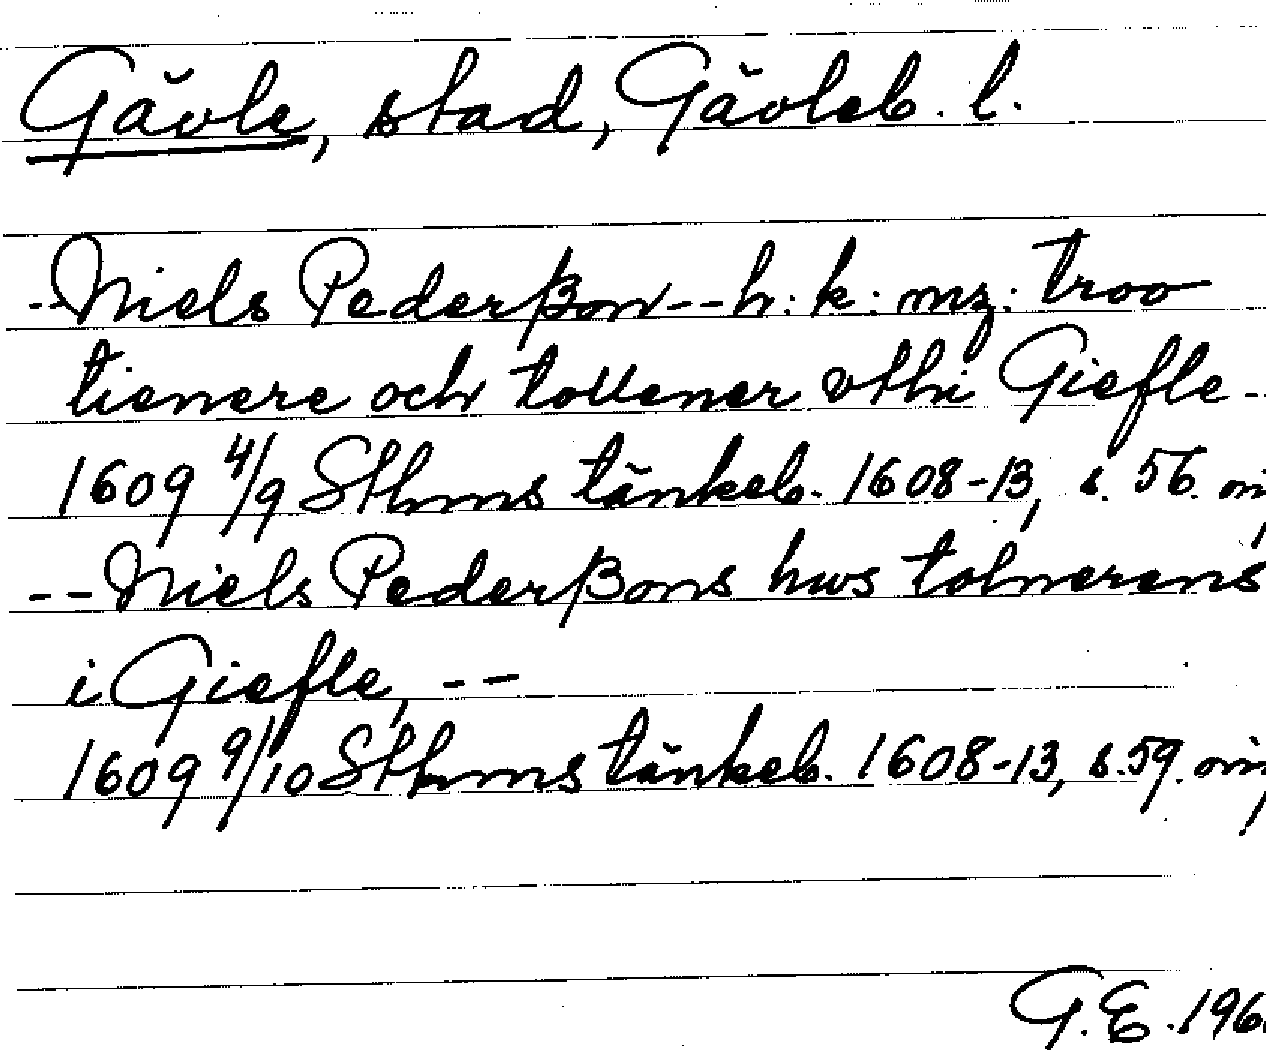 Gävle, stad, Gävleb. l.
--Niels Pederßon--h: k: mz: troo
tienere och tollener vthi Giefle--
1609 4/9 Sthms tänkeb. 1608-13, s. 56.
--Niels Pederßons hws tolnerens
i Giefle, --
1609 9/10 Sthms tänkeb. 1608-13, s. 59.
G.E.